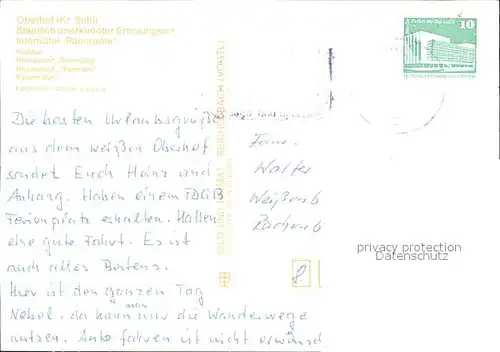 Oberhof (Kr. Suhl)
Staatlich anerkannter Erholungsort
Interhotel "Panorama"
10
Die besten Urlaubsgrüße
aus dem weißen Oberhof
sendet Euch Heinz und
Anhang. Haben einem FDGB
Ferienplatz erhalten. Hatten
eine gute Fahrt. Es ist
auch alles Bestens.
Hier ist den ganzen Tag
Nebel, da kann man nur die Wanderwege
nutzen. Auto fahren ist nicht erwünscht
BILD UND HEIMAT REICHENBACH (VOGTL)
Fam.
Walter
privacy protection
Datenschutz